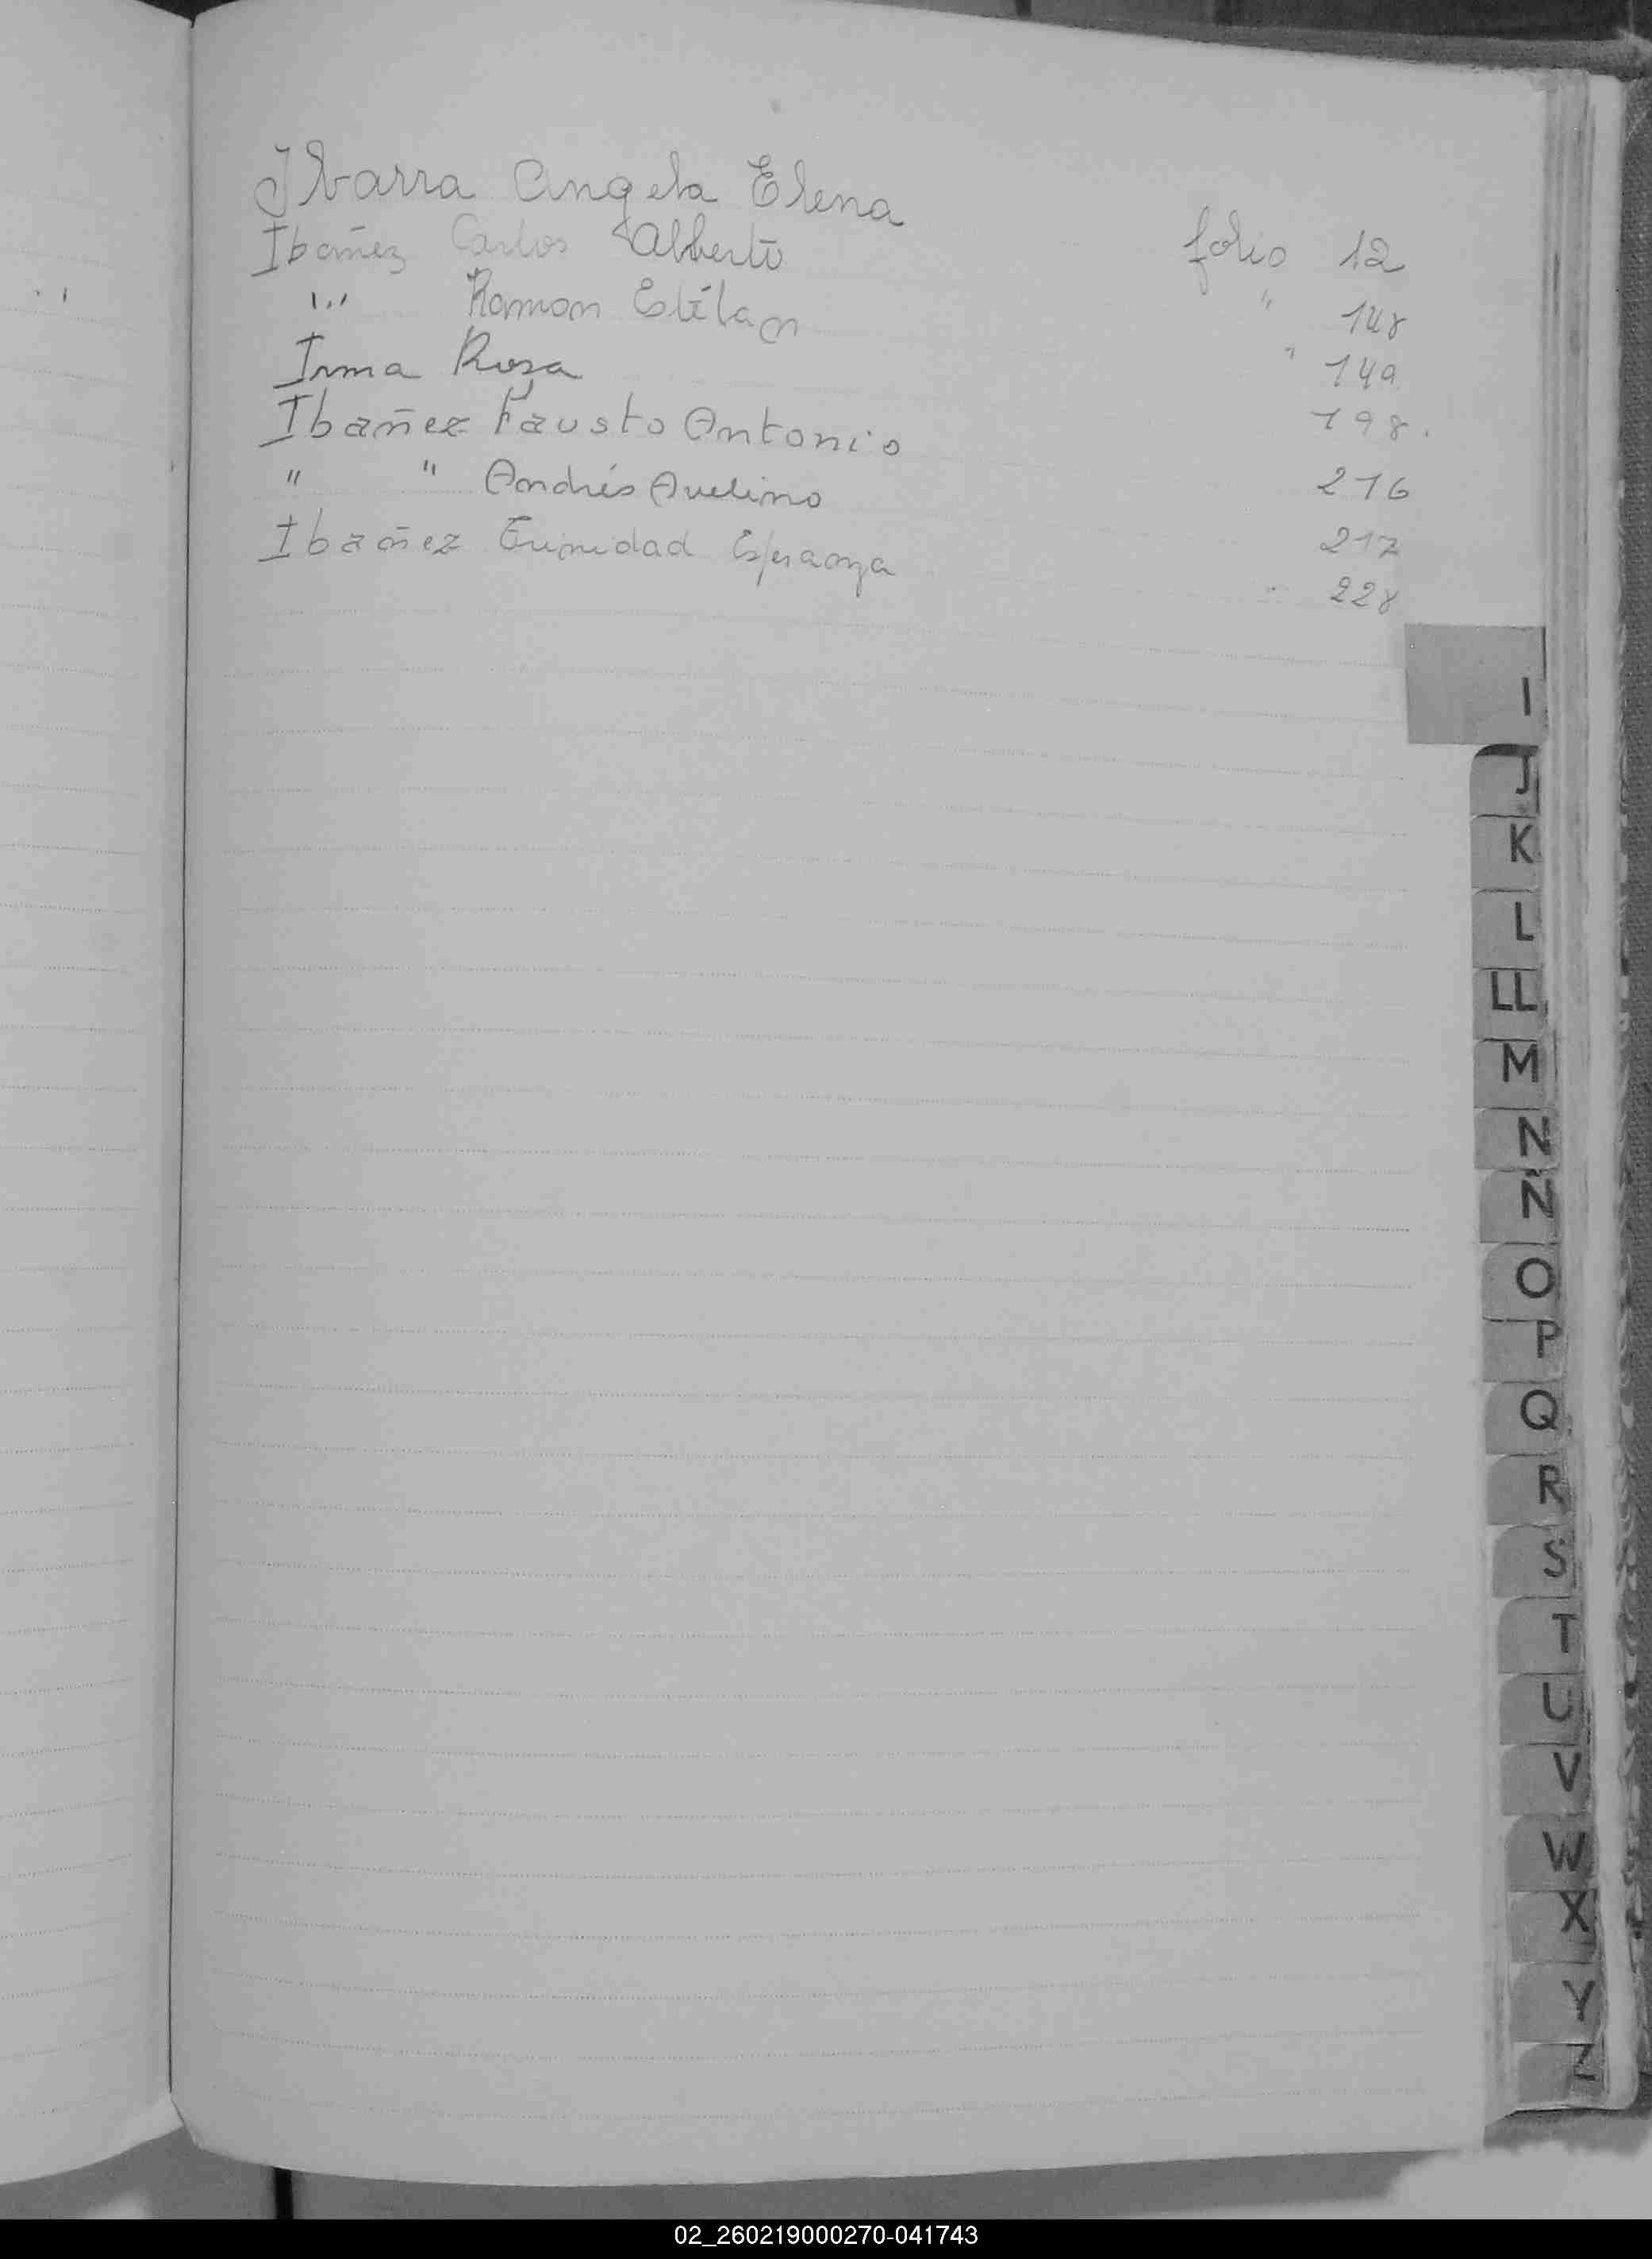 Ibarra Angela Elena folio 12
Ibañez Carlos Alberto " 148
" Ramon Estelan " 149
Irma Rosa 198.
Ibañez Fausto Antonio 216
" " Andrés Avelino 217
Ibañez Trinidad Esperanza 228
I
J
K
L
LL
M
N
Ñ
O
P
Q
R
S
T
U
V
W
X
Y
Z
02_260219000270-041743